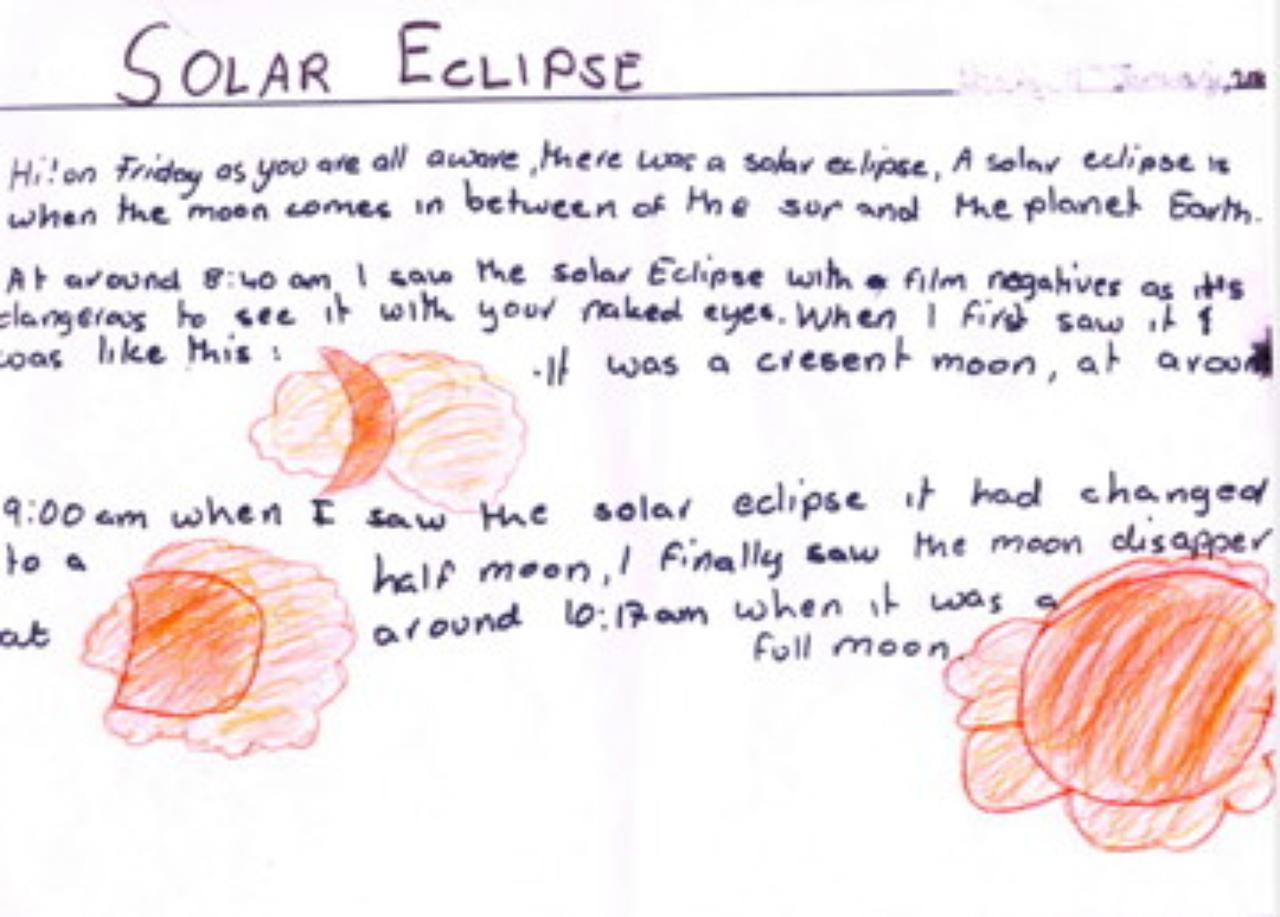 SOLAR ECLIPSE
January, 20
Hi! on Friday as you are all aware, there was a solar eclipse, A solar eclipse is
when the moon comes in between of the sun and the planet Earth.
At around 8:40 am I saw the solar Eclipse with film negatives as it's
dangerous to see it with your naked eyes. When I first saw it
was like this:
.It was a cresent moon, at around
9:00 am when I saw the solar eclipse it had changed
to a half moon, I finally saw the moon disapper
at around 10:17 am when it was a
full moon.